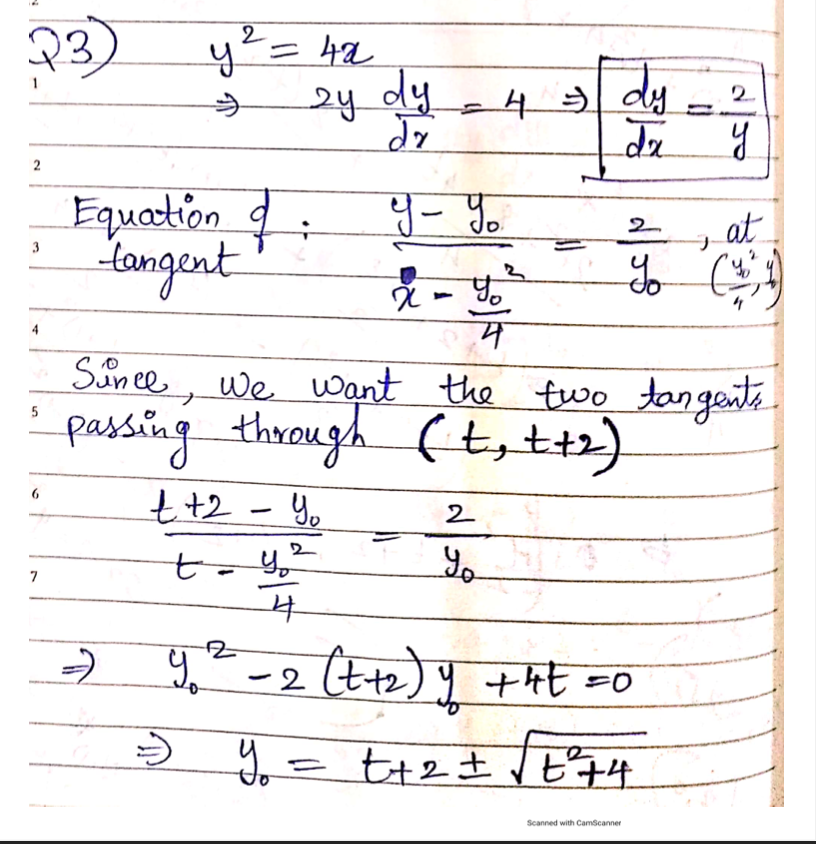 Q3) y² = 4x
⇒ 2y dy/dx = 4 ⇒ dy/dx = 2/y
Equation of tangent : (y - y₀)/(x - y₀²/4) = 2/y₀ , at (y₀²/4, y₀)
Since, we want the two tangents
passing through (t, t+2)
(t+2 - y₀)/(t - y₀²/4) = 2/y₀
⇒ y₀² - 2(t+2)y₀ + 4t = 0
⇒ y₀ = t+2 ± √(t²+4)
1
2
3
4
5
6
7
Scanned with CamScanner